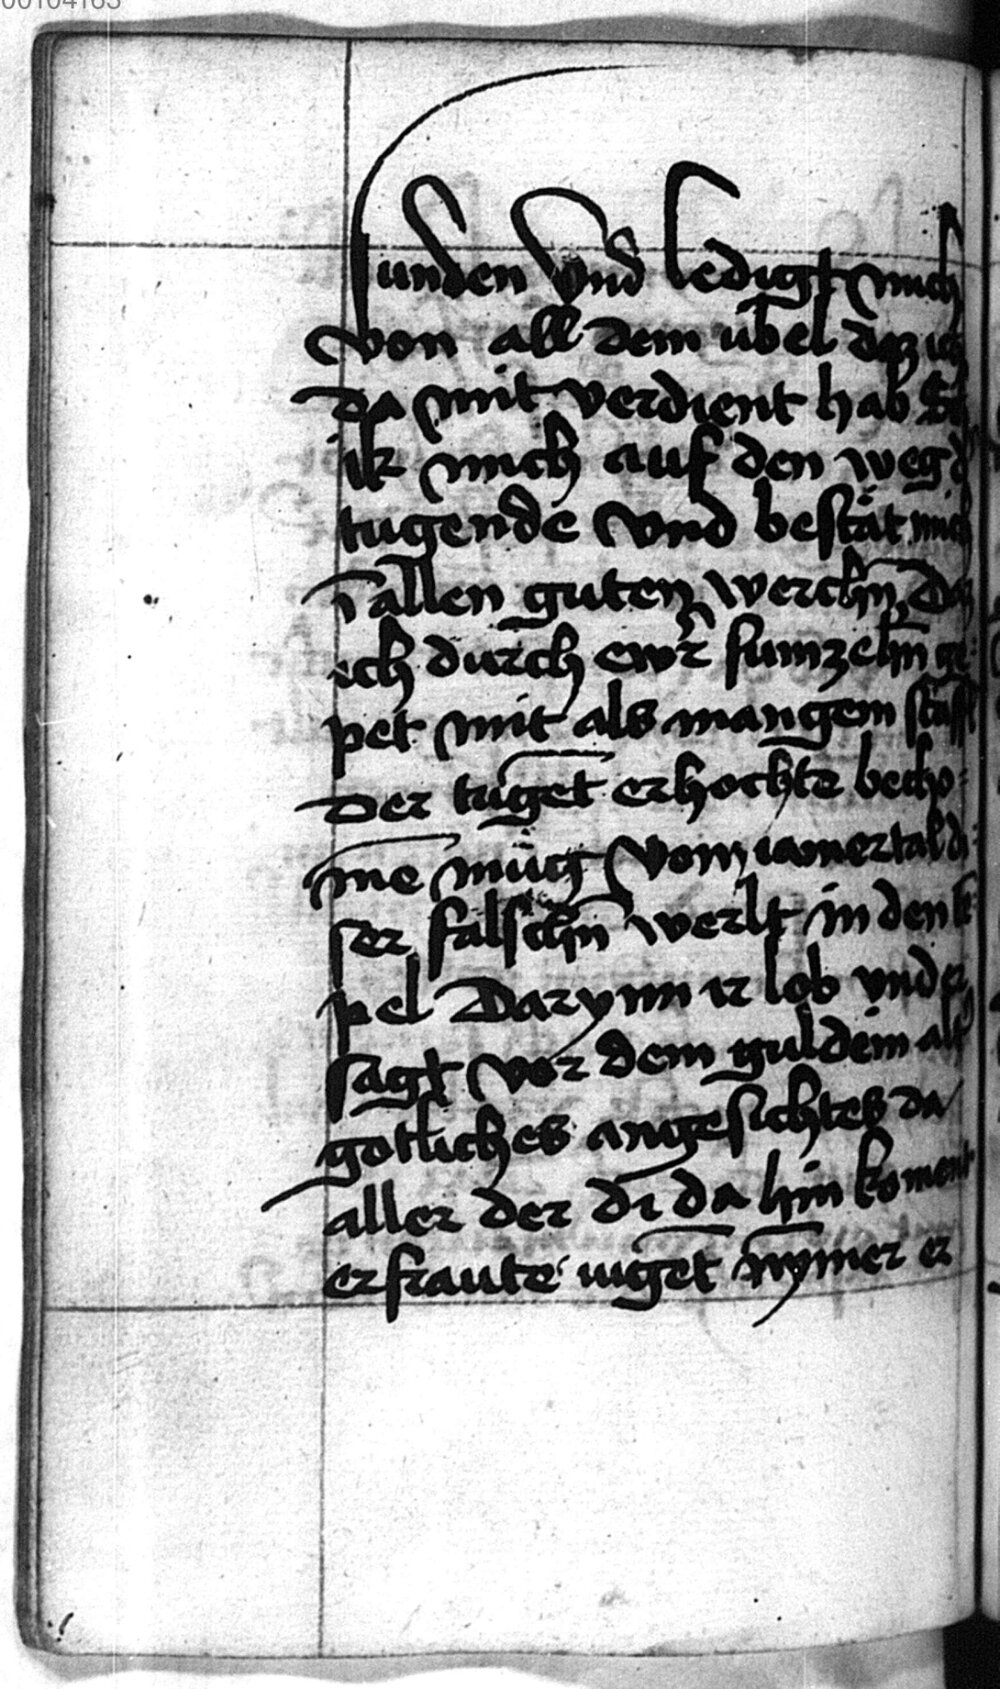 00104163
sunden vnd ledigt mich
von all dem übel daz ich
da mit verdient hab
mich auf den weg d
tugende vnd bestät mich
ī allen guten werckn̄ Daz
ich durch ewr funzeln̄ ge
pet mit als mangem staff
Der tuget̄ erhochte becho
m̄e müg vom iamertal di
ser falschn̄ werlt in den te
pel Darynn ir lob vnd er
sagt vor dem guldein alt
gotliches angesichtes da
aller der di da hin koment
erfraute iuget̄ nȳmer er